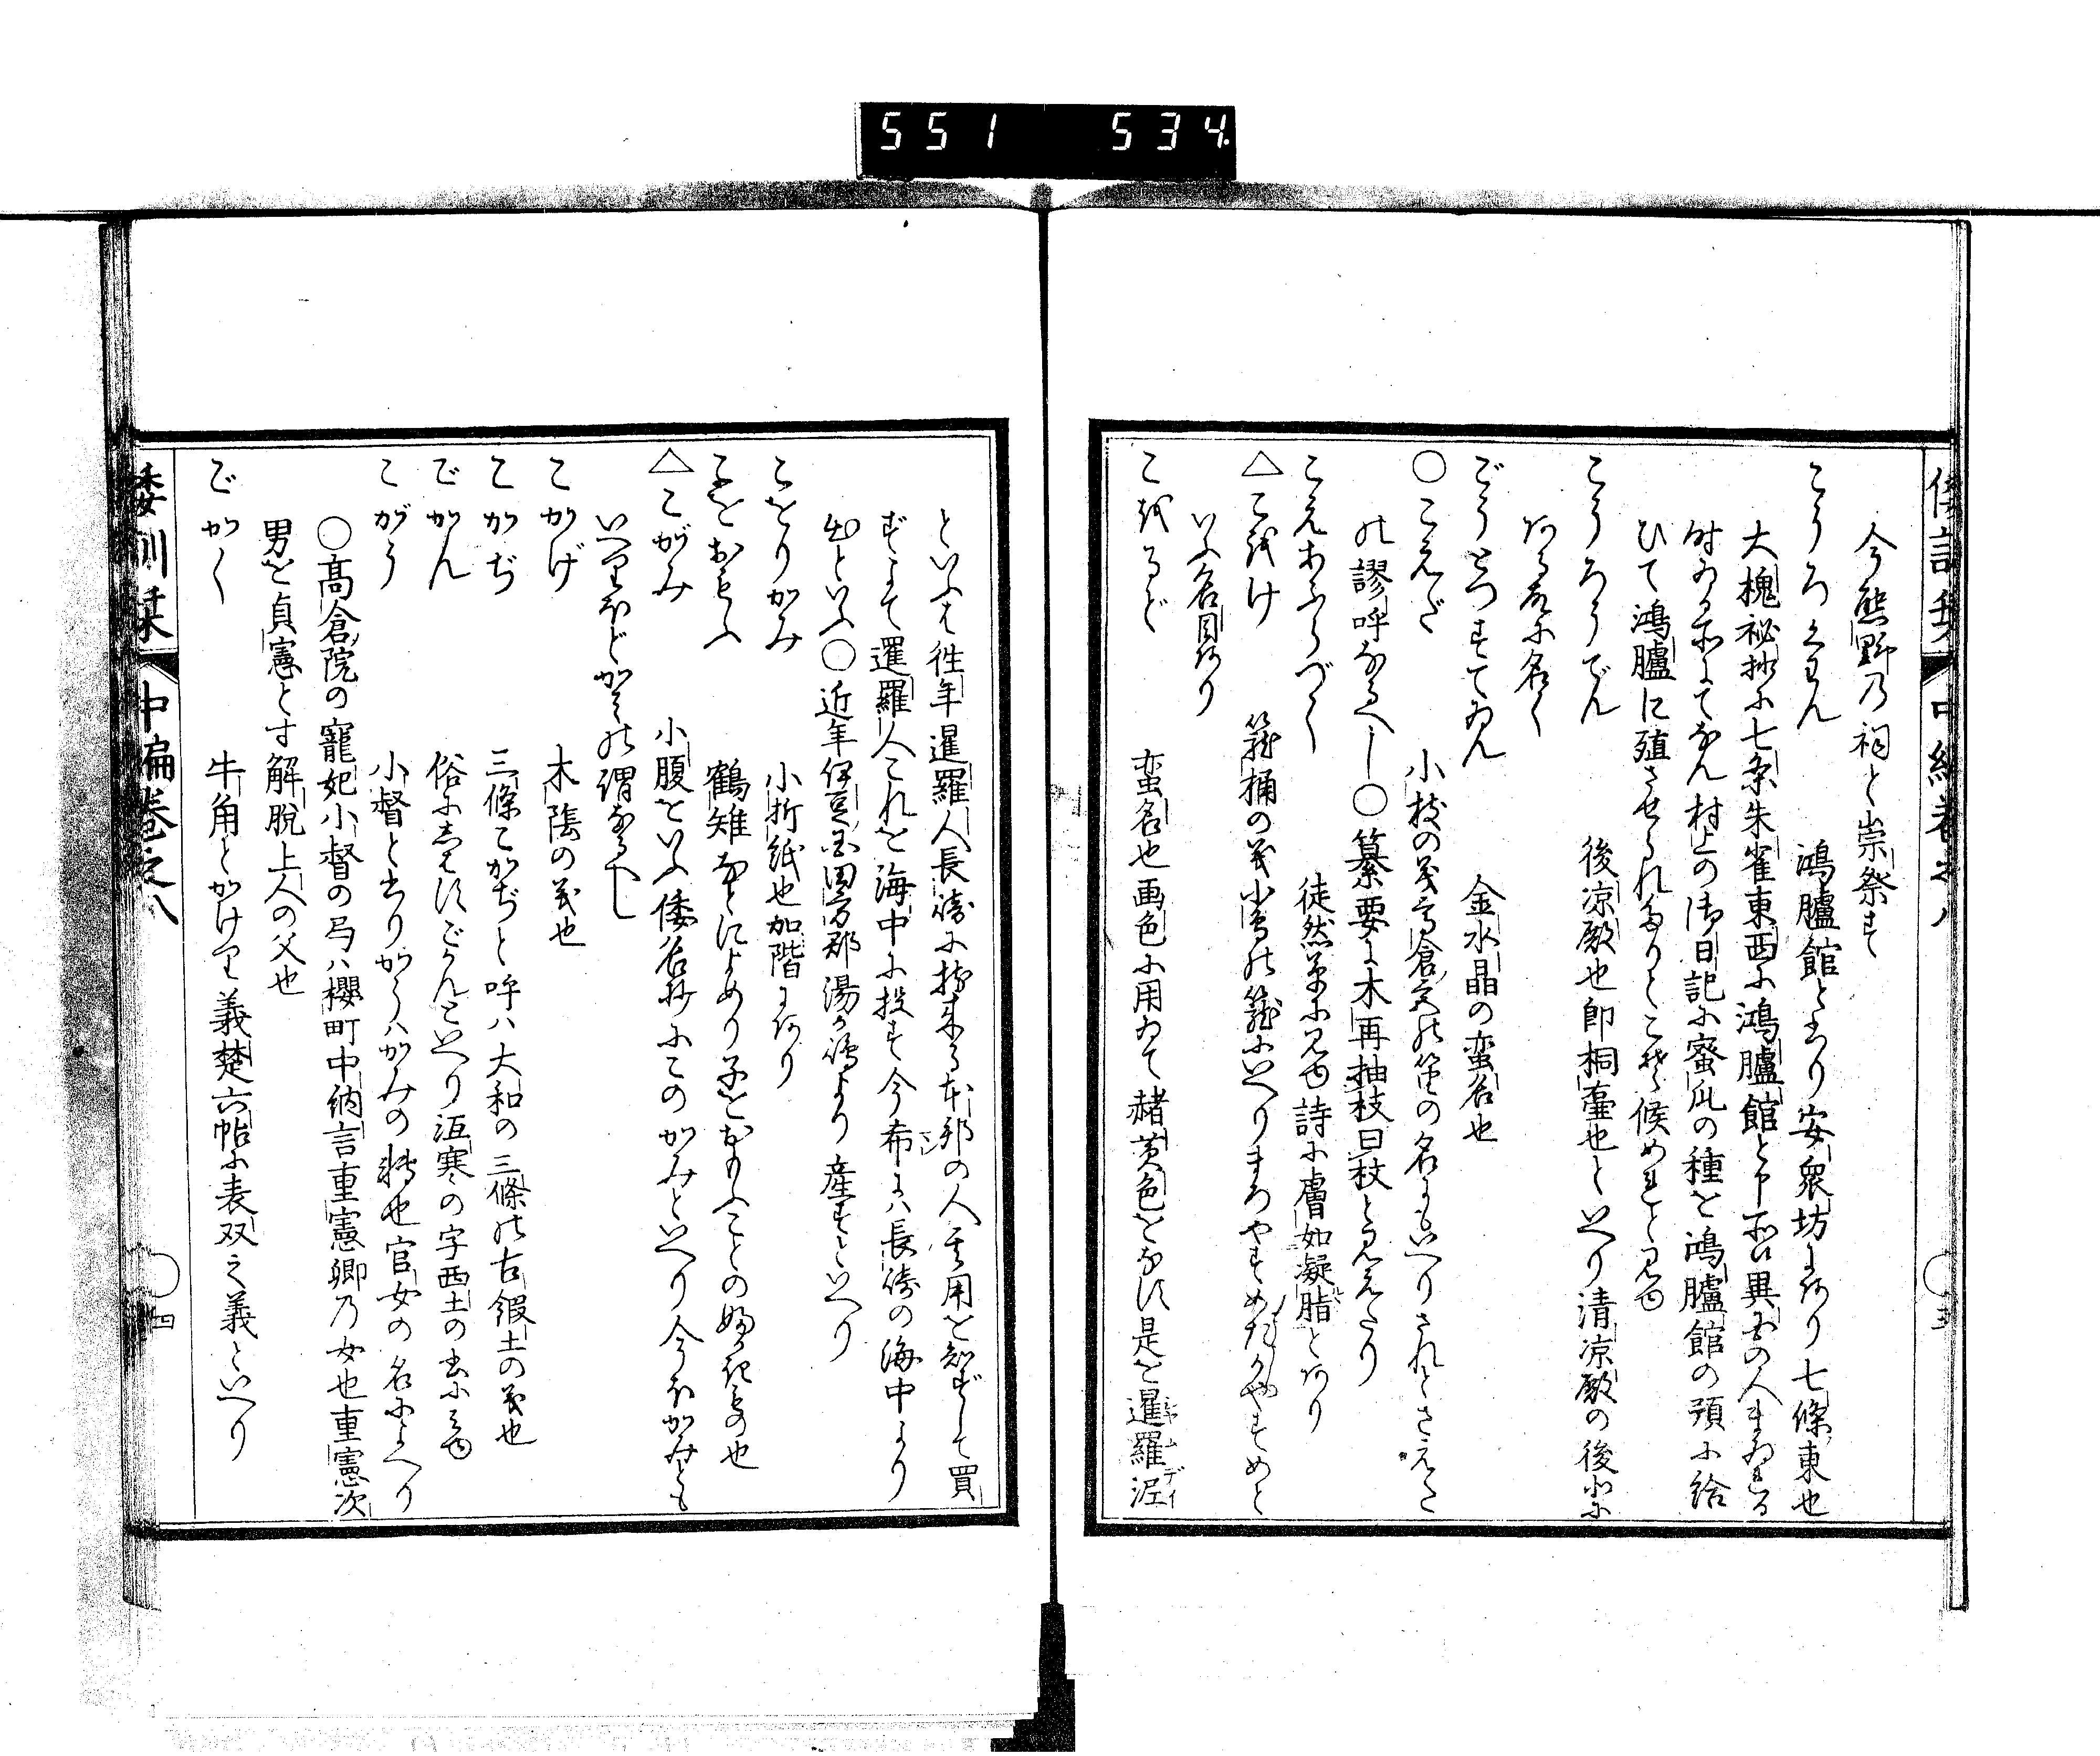 551 534
今熊野乃祠と崇祭す
こうろくわん 鴻臚館と書り安衆坊にあり七條東也
大槐祕抄に七条朱雀東西に鴻臚館と申所は異国の人まゐれる
時ゐる所にてなん村上の御日記に蜜瓜の種を鴻臚館の預に給
ひて鴻臚に殖させられたりとこそ候めれと見ゆ
こうろうでん 後凉殿也即桐壷也といへり清凉殿の後に
ある故に名く
ごうとつすてゐん 金水晶の蛮名也
○こえだ 小枝の義高倉宮の笛の名にもいへりされとさえた
の謬呼なるへし○纂要に木再抽枝曰枝と見えたり
こえあぶらづく 徒然草に見ゆ詩に膚如凝脂とあり
△こをけ 籠桶の義 の籠にいへりまろやすめたかやすめと
いふ名目あり
こをるど 蛮名也画色に用ゐて赭黄色をなす是を暹羅泥
といふは徃年暹羅人長崎に持来る本邦の人其用を知ずして買
ずよて暹羅人これを海中に投す今希には長崎の海中より
出といふ○近年伊豆国田方郡湯か嶋より産すといへり
こをりがみ 小折紙也加階にあり
こをおもふ 鶴雉なとによめり子をおもふことの婦か性もの也
△こがみ 小腹をいふ倭名抄にこのかみといへり今ほがみとも
いへりほどがみの謂なるへし
こかげ 木陰の義也
こかぢ 三條こかぢと呼ハ大和の三條の古鍜士の義也
ごかん 俗にしはすごかんといへり沍寒の字西土の書に見ゆ
こがう 小督と書りがうハかみの轉也官女の名によへり
○髙倉院の寵妃小督の局ハ櫻町中納言重憲卿乃女也重憲次
男を貞憲とす解脱上人の父也
ごかく 牛角とかけり義楚六帖に表双之義といへり
倭訓栞 中編巻之八 四